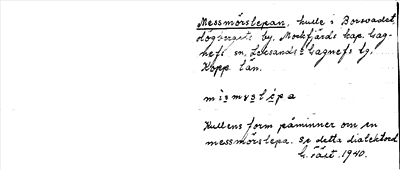 Messmörslepan, kulle i Borsvadet,
Högbergets by, Mockfjärds kap. Gag-
nefs sn, Leksands o Gagnefs tg.
Kopp. län.
Kullens form påminner om en
messmörslepa. Se detta dialektord
1940.